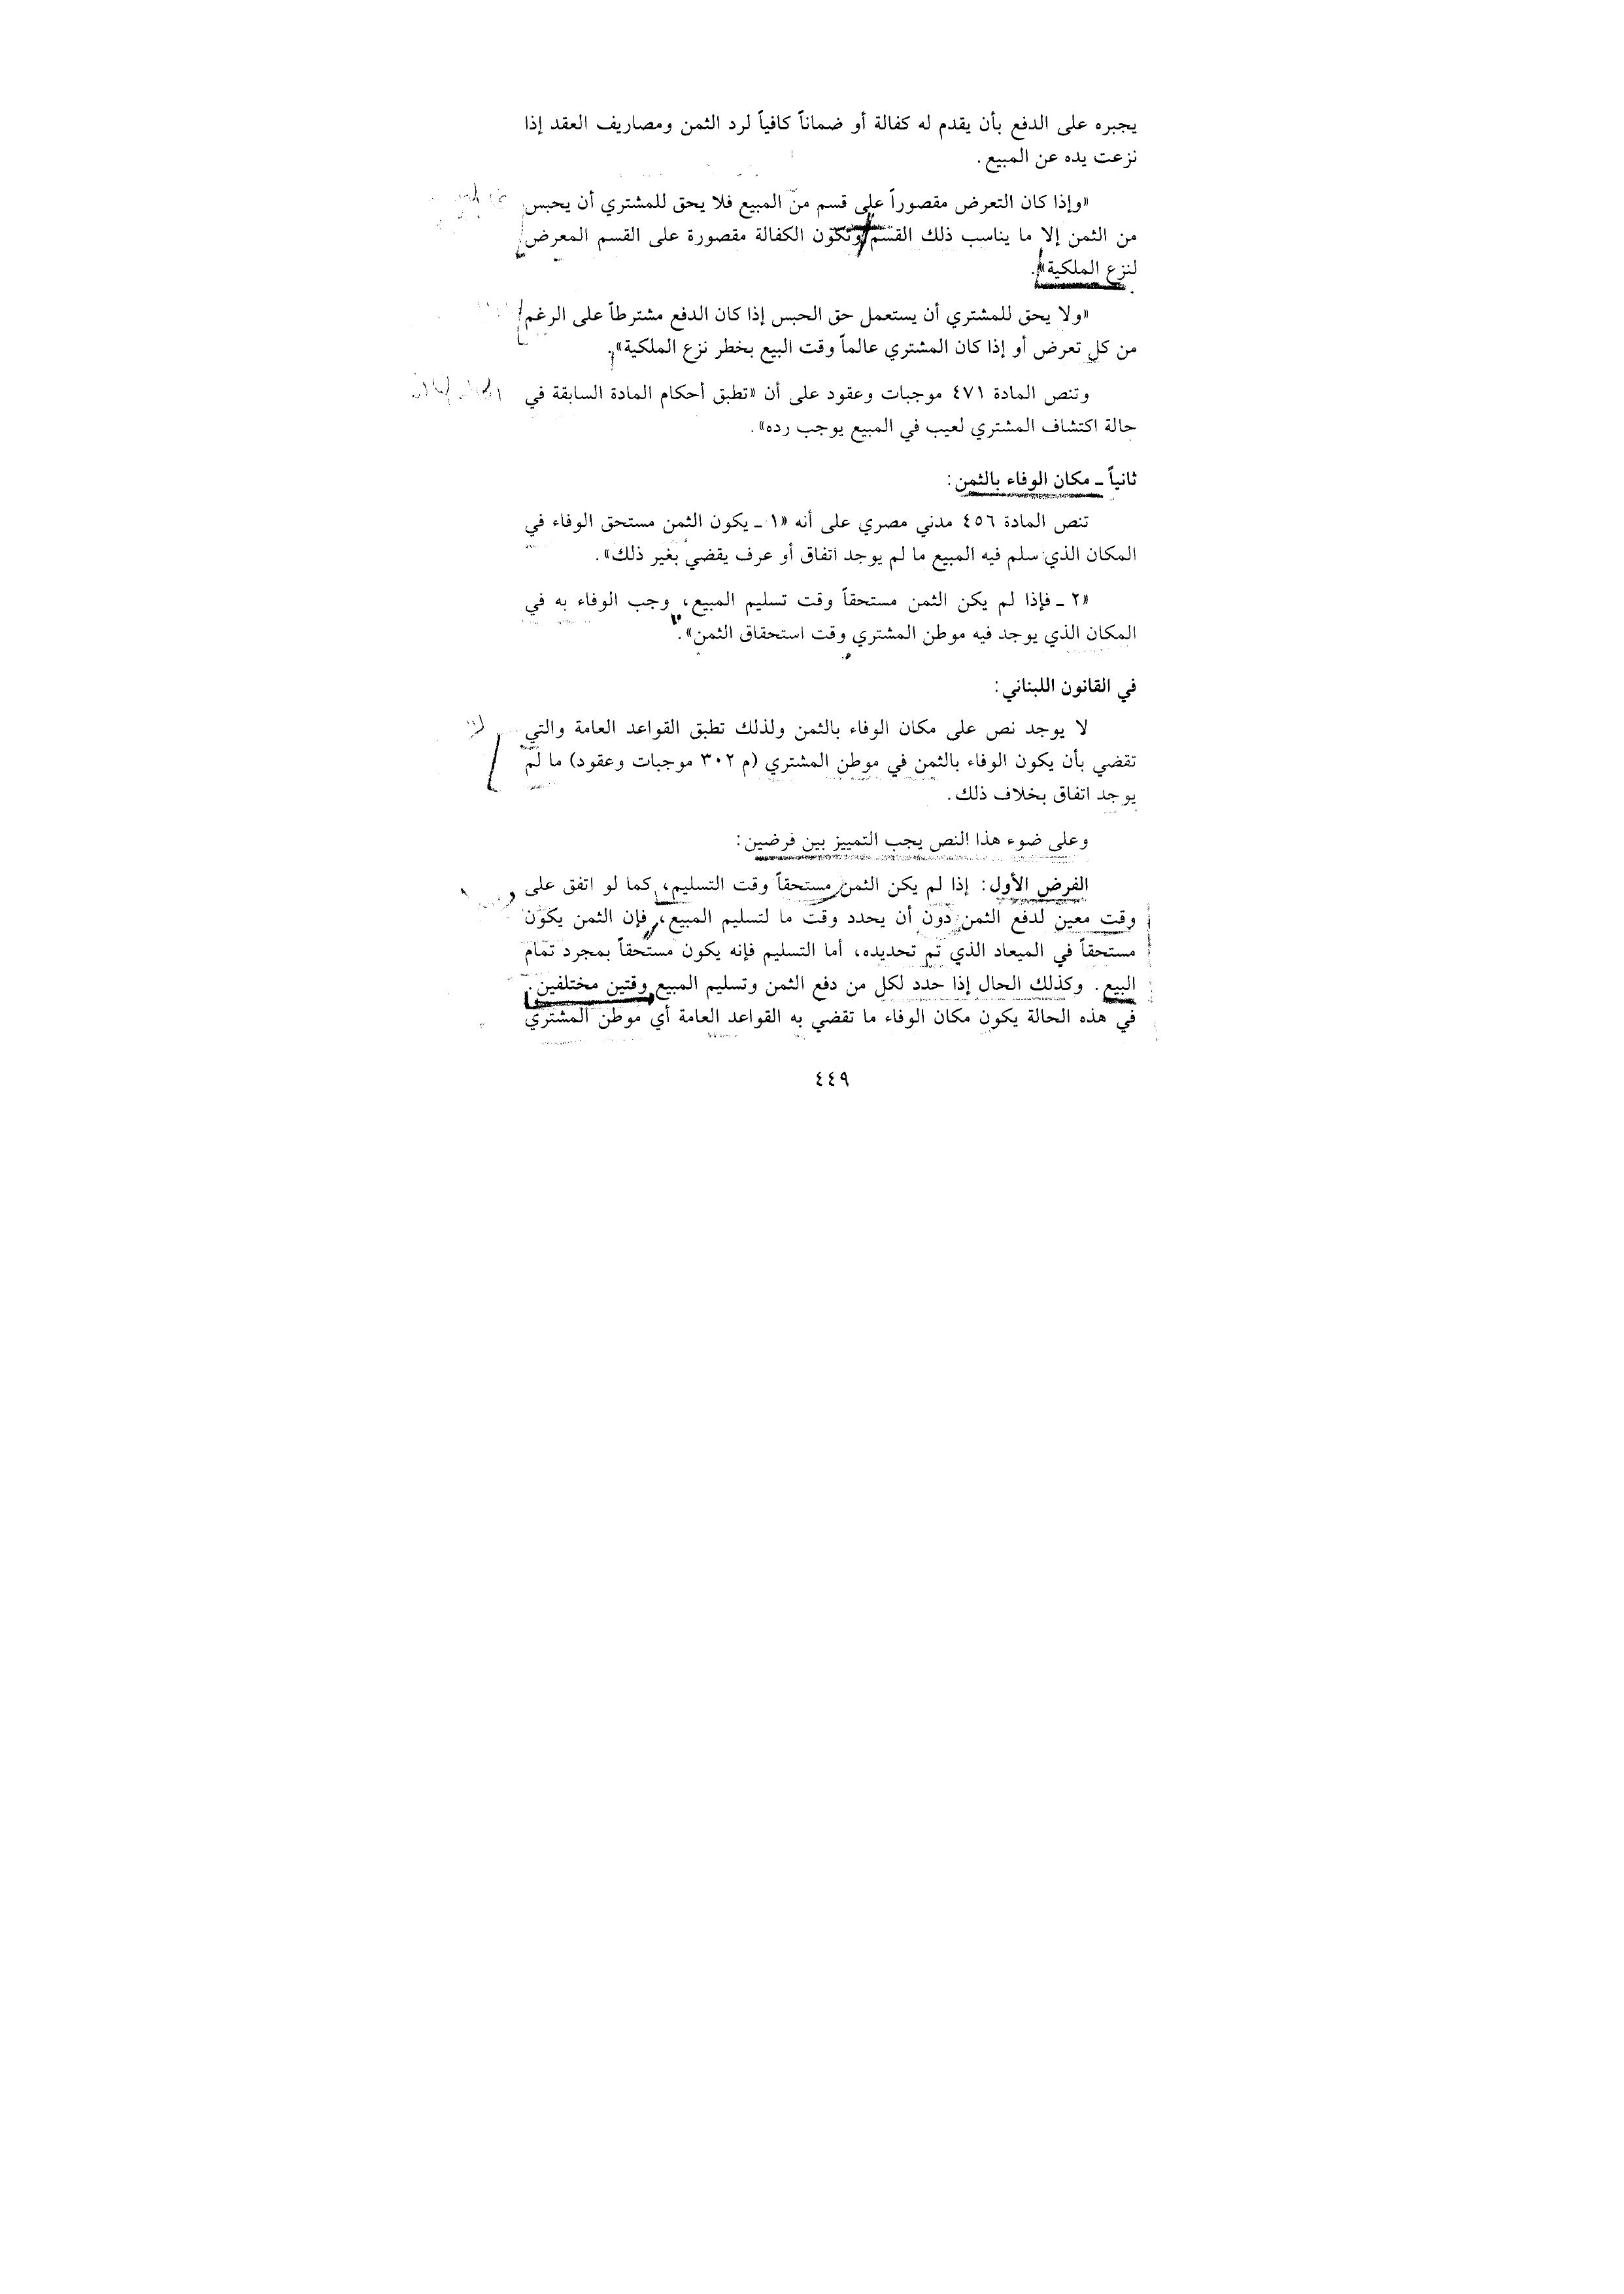 يجبره على الدفع بأن يقدم له كفالة أو ضماناً كافياً لرد الثمن ومصاريف العقد إذا
نزعت يده عن المبيع.
«وإذا كان التعرض مقصوراً على قسم من المبيع فلا يحق للمشتري أن يحبس
من الثمن إلا ما يناسب ذلك القسم وتكون الكفالة مقصورة على القسم المعرض
لنزع الملكية».
«ولا يحق للمشتري أن يستعمل حق الحبس إذا كان الدفع مشترطاً على الرغم
من كل تعرض أو إذا كان المشتري عالماً وقت البيع بخطر نزع الملكية».
وتنص المادة ٤٧١ موجبات وعقود على أن «تطبق أحكام المادة السابقة في
حالة اكتشاف المشتري لعيب في المبيع يوجب رده».
ثانياً ـ مكان الوفاء بالثمن:
تنص المادة ٤٥٦ مدني مصري على أنه «١ ـ يكون الثمن مستحق الوفاء في
المكان الذي سلم فيه المبيع ما لم يوجد اتفاق أو عرف يقضي بغير ذلك».
«٢ ـ فإذا لم يكن الثمن مستحقاً وقت تسليم المبيع، وجب الوفاء به في
المكان الذي يوجد فيه موطن المشتري وقت استحقاق الثمن».
في القانون اللبناني:
لا يوجد نص على مكان الوفاء بالثمن ولذلك تطبق القواعد العامة والتي
تقضي بأن يكون الوفاء بالثمن في موطن المشتري (م ٣٠٢ موجبات وعقود) ما لم
يوجد اتفاق بخلاف ذلك.
وعلى ضوء هذا النص يجب التمييز بين فرضين:
الفرض الأول: إذا لم يكن الثمن مستحقاً وقت التسليم، كما لو اتفق على
وقت معين لدفع الثمن دون أن يحدد وقت ما لتسليم المبيع، فإن الثمن يكون
مستحقاً في الميعاد الذي تم تحديده، أما التسليم فإنه يكون مستحقاً بمجرد تمام
البيع. وكذلك الحال إذا حدد لكل من دفع الثمن وتسليم المبيع وقتين مختلفين.
في هذه الحالة يكون مكان الوفاء ما تقضي به القواعد العامة أي موطن المشتري
٤٤٩